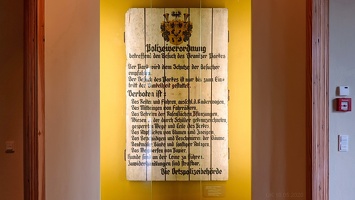 Polizeiverordnung
betreffend den Besuch des Branitzer Parkes
Der Park wird dem Schutze der Besucher
empfohlen.
Der Besuch des Parkes ist nur bis zum Ein-
tritt der Dunkelheit gestattet.
Verboten ist:
Das Reiten und Fahren, ausschl. d. Kinderwagen.
Das Mitbringen von Fahrrädern.
Das Betreten der
Wiesen, der durch Schilder gekennzeichneten
gesperrten Wege und Teile des Parkes.
Das Abpflücken von Blumen und Zweigen.
Das Beschädigen und Beschmieren der Bäume,
Denkmäler, Bänke und sonstiger Anlagen.
Das Wegwerfen von Papier.
Hunde sind an der Leine zu führen.
Zuwiderhandlungen sind strafbar.
Die Ortspolizeibehörde